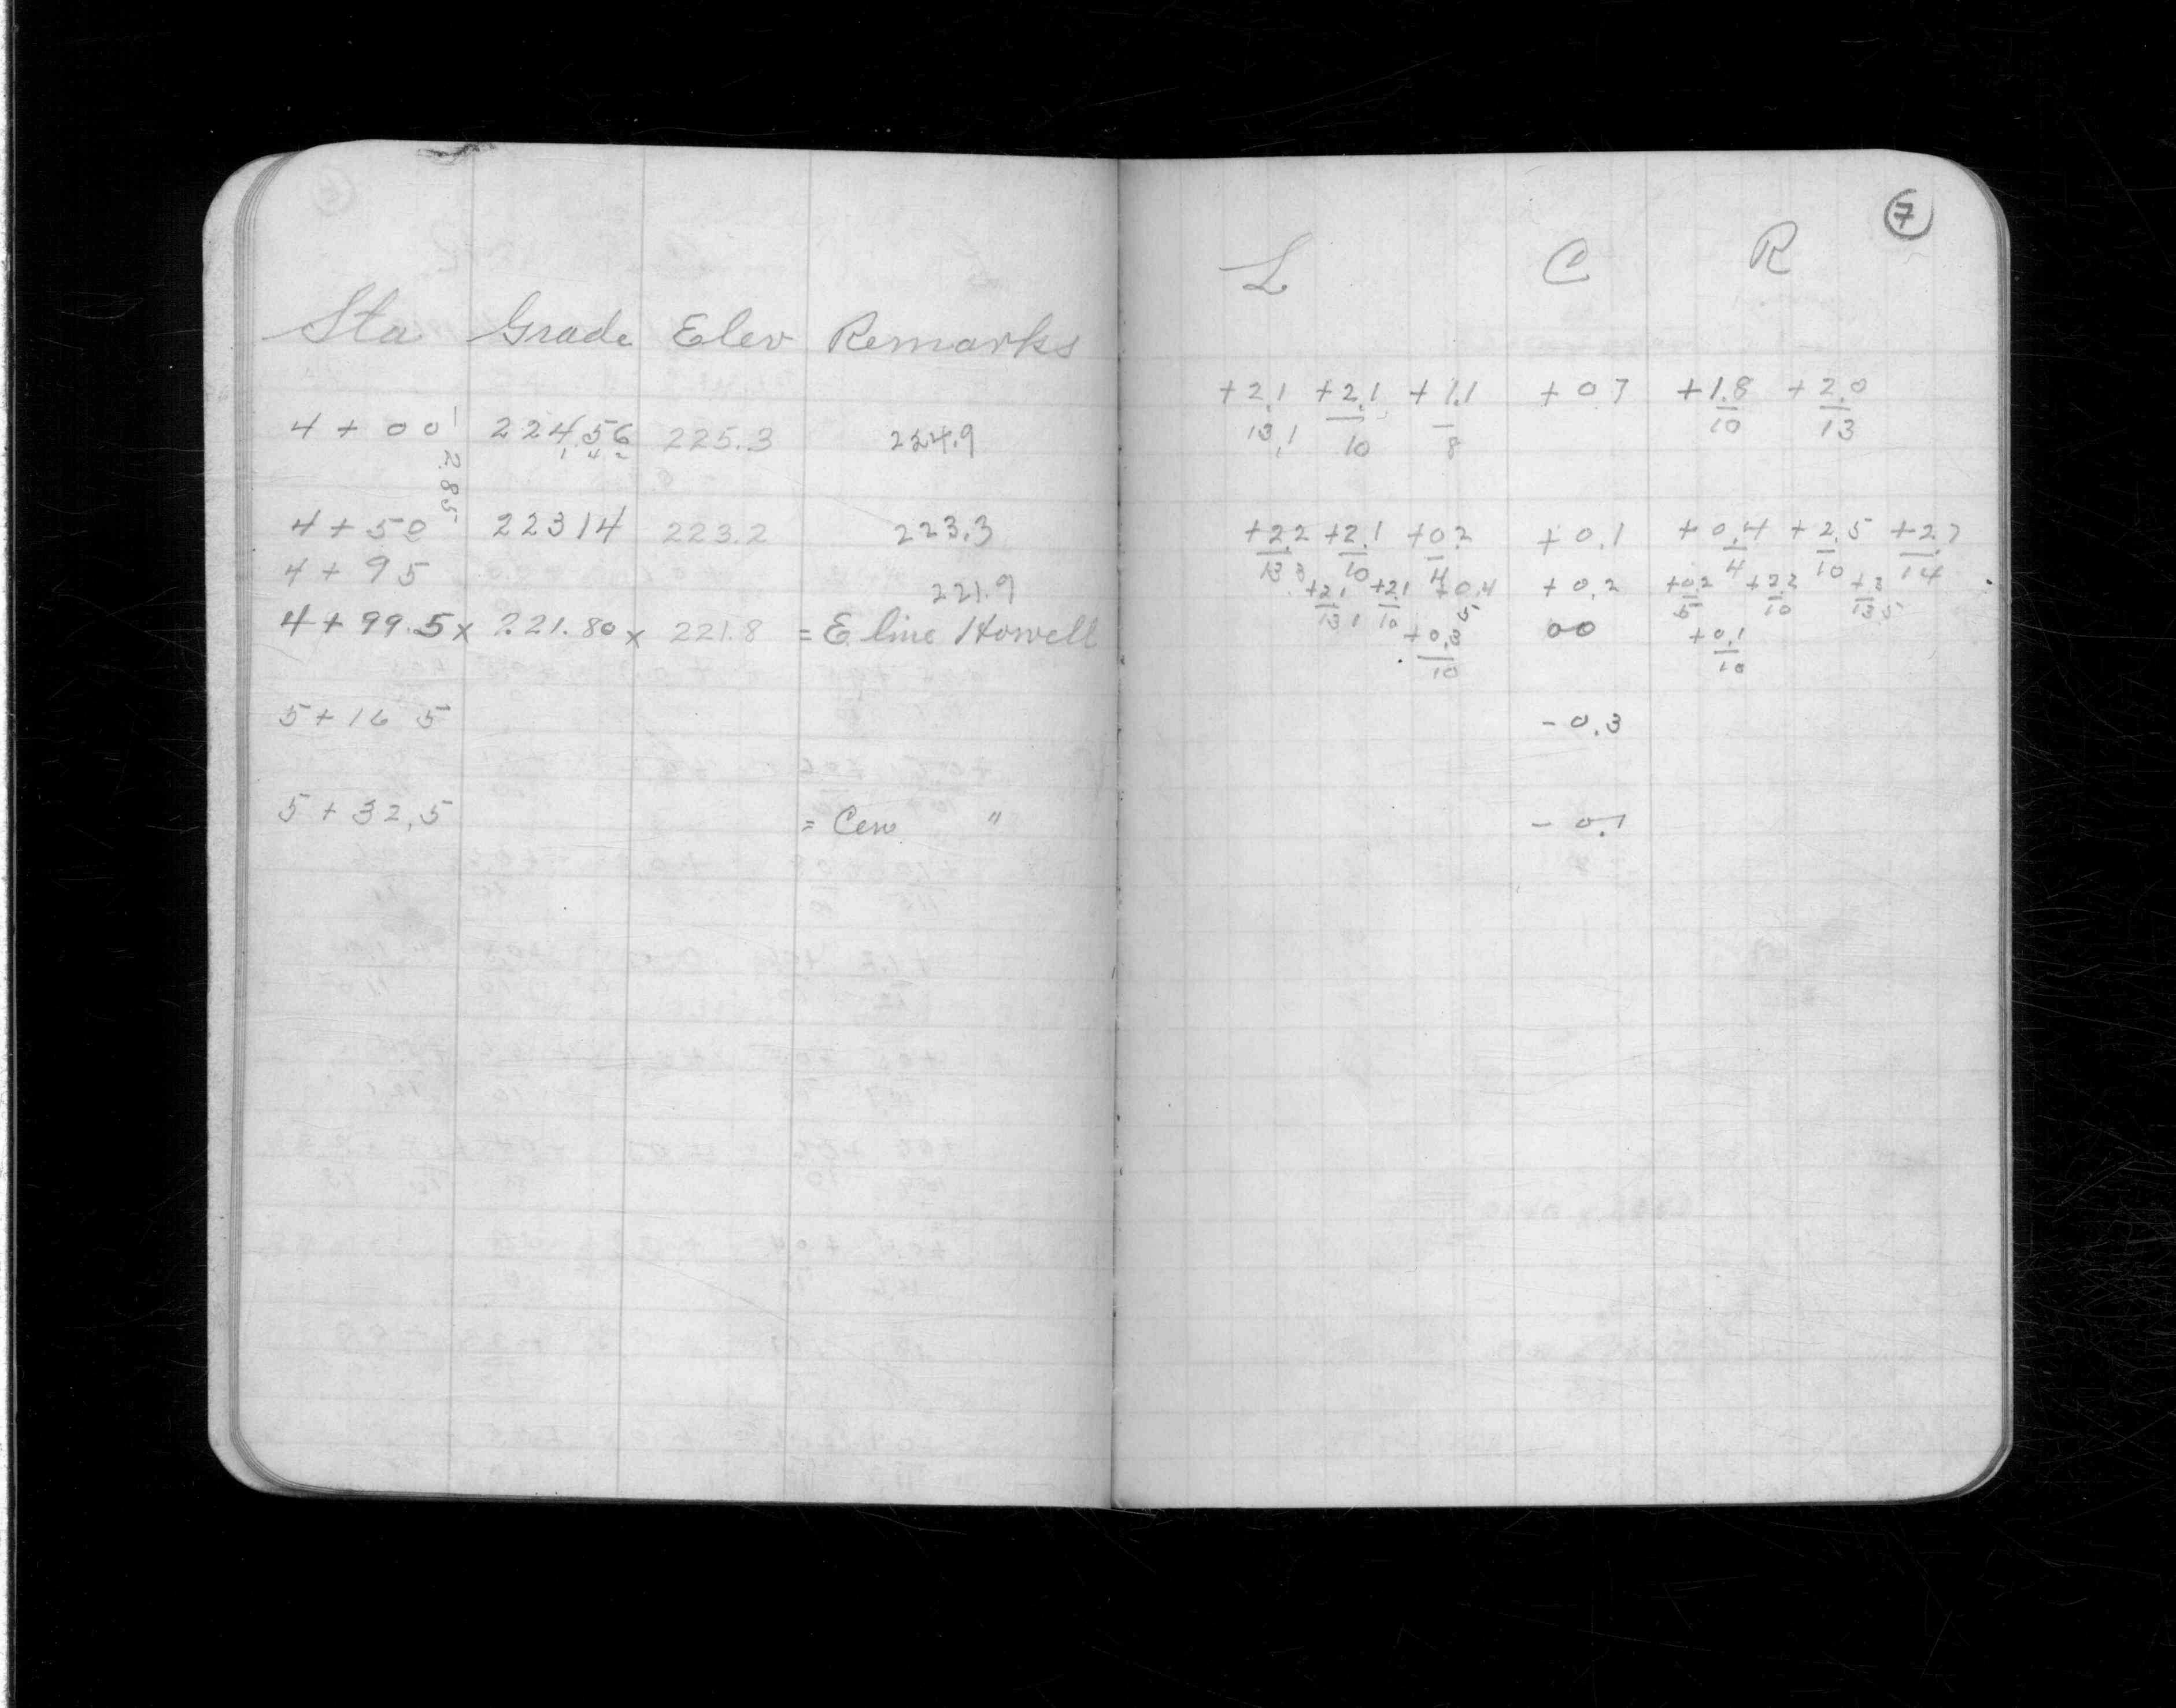 Sta Grade Elev Remarks
4 + 00 224.56 225.3 224.9
1 4 2
2.85
4 + 50 223 14 223.2 223.3
4 + 95 221.9
4 + 99.5 x 221.80 x 221.8 = E line Howell
5 + 16 5
5 + 32.5 = Cen "
7
L C R
+ 2.1 + 2.1 + 1.1 + 0 7 + 1.8 + 2.0
13.1 10 8 10 13
+ 2.2 + 2.1 + 0.2 + 0.1 + 0.4 + 2.5 + 2.7
13 3 10 4 4 10 14
+ 2.1 + 2.1 + 0.4 + 0.2 + 0.2 + 2.2 + 2.3
13 1 10 5 5 10 13.5
+ 0.3 00 + 0.1
10 10
- 0.3
- 0.1